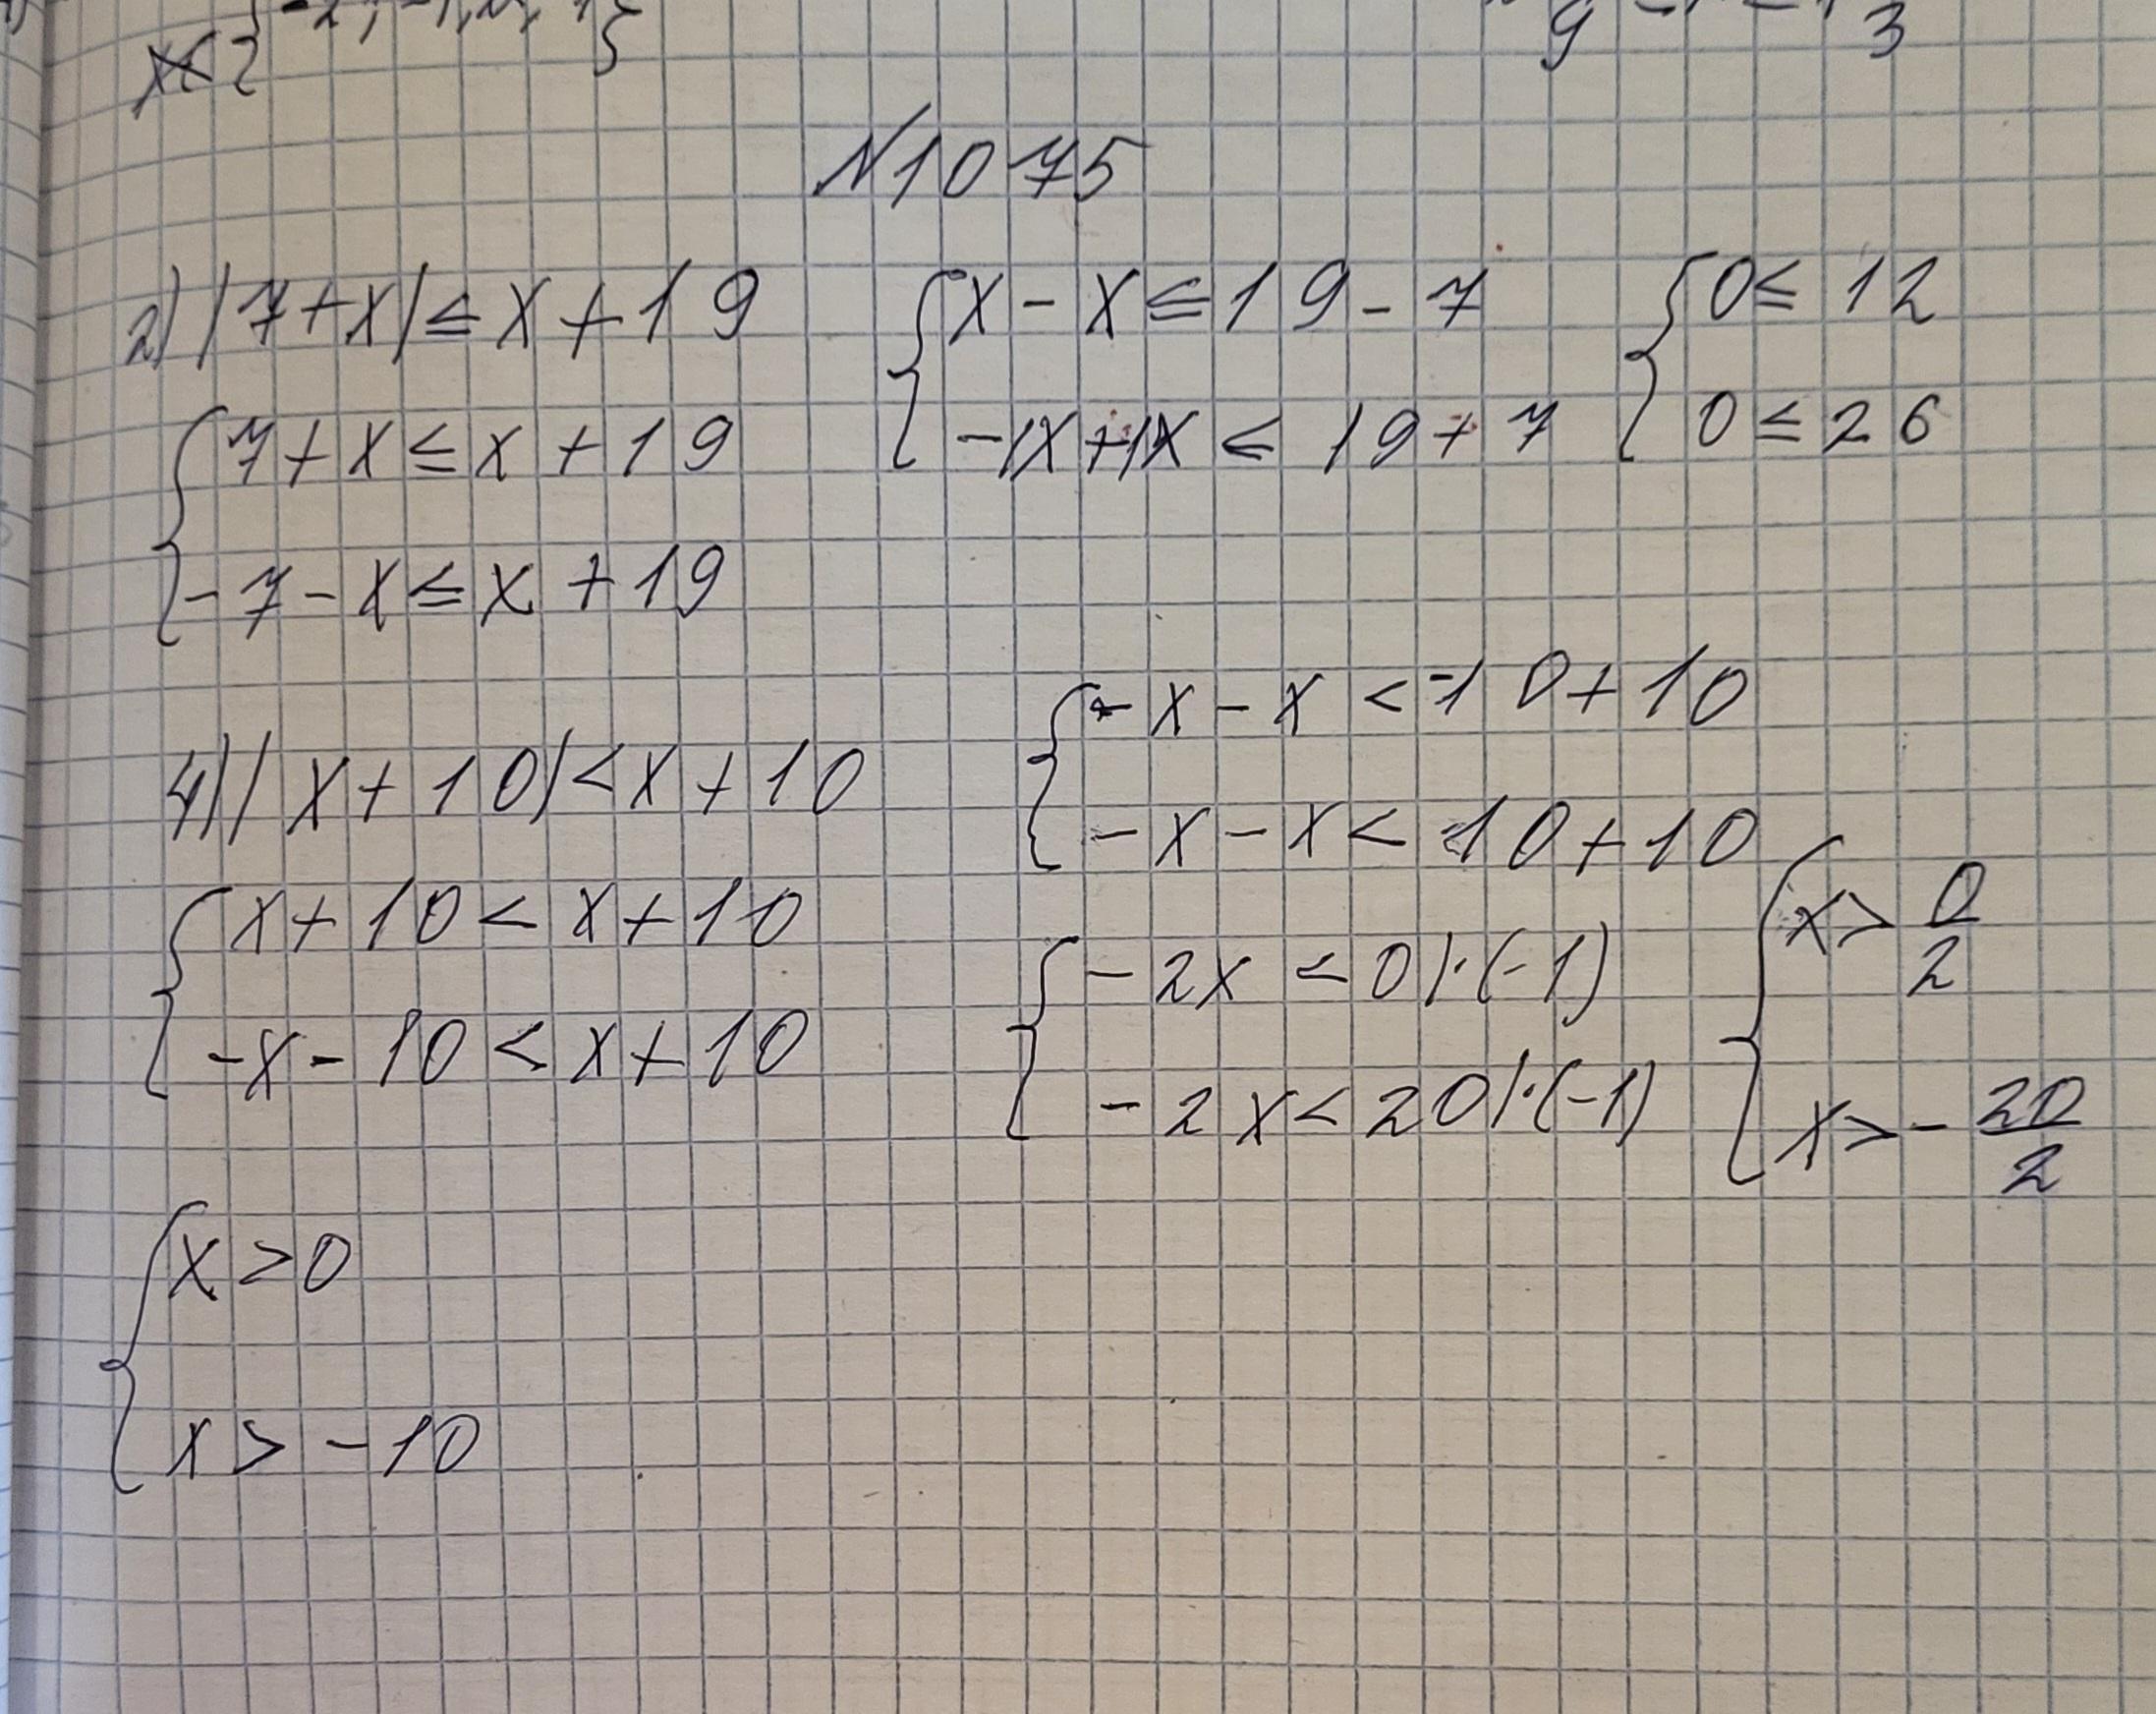 №1075
2) |7+x| ≤ x + 19
{ 7 + x ≤ x + 19
{ -7 - x ≤ x + 19
{ x - x ≤ 19 - 7
{ -1x + 1x ≤ 19 + 7
{ 0 ≤ 12
{ 0 ≤ 26
4) |x + 10| < x + 10
{ x + 10 < x + 10
{ -x - 10 < x + 10
{ - x - x < -10 + 10
{ - x - x < 10 + 10
{ - 2x < 0 | · (-1)
{ - 2x < 20 | · (-1)
{ x > 0/2
{ x > - 20/2
{ x > 0
{ x > -10